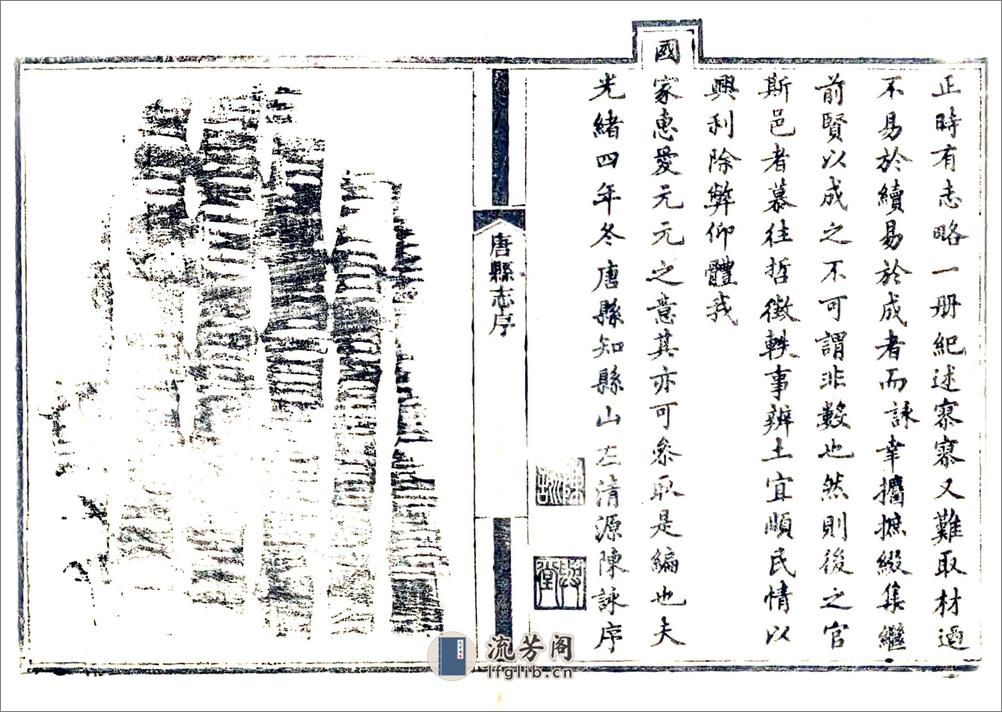 正時有志略一册紀述寥寥又難取材迺
不易於續易於成者而詠幸攟摭綴集繼
前賢以成之不可謂非數也然則後之官
斯邑者慕往哲徵軼事辨土宜順民情以
興利除弊仰體我
國
家惠愛元元之意其亦可叅取是編也夫
光緒四年冬唐縣知縣山左清源陳詠序
唐縣志序
流芳阁
lfglib.cn